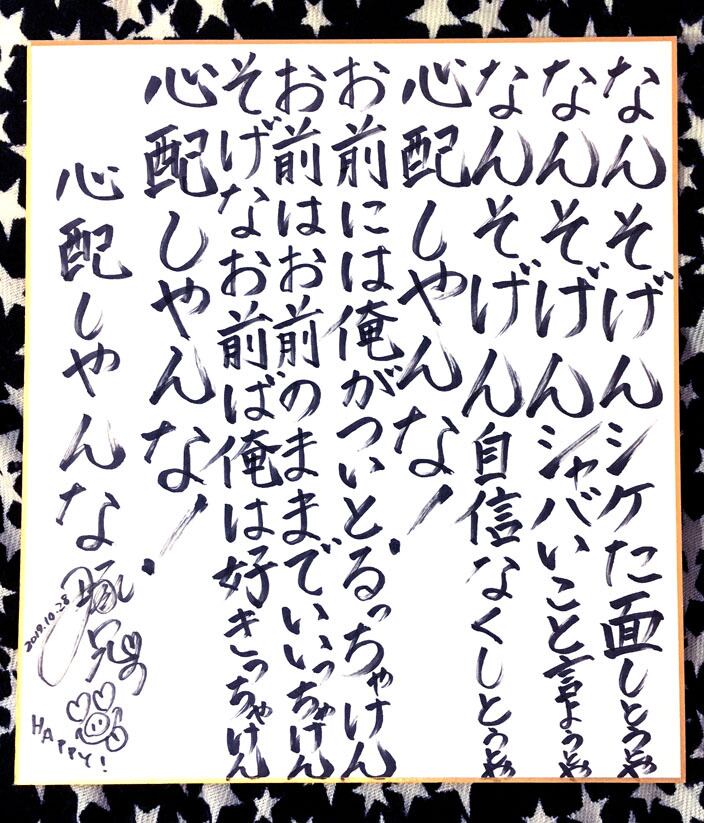 なんそげんシケた面しとうや
なんそげんシャバいこと言ようや
なんそげん自信なくしとうや
心配しやんな!
お前には俺がついとるっちゃけん
お前はお前のままでいいっちゃけん
そげなお前ば俺は好きっちゃけん
心配しやんな!
心配しやんな
2019.10.28
HAPPY!